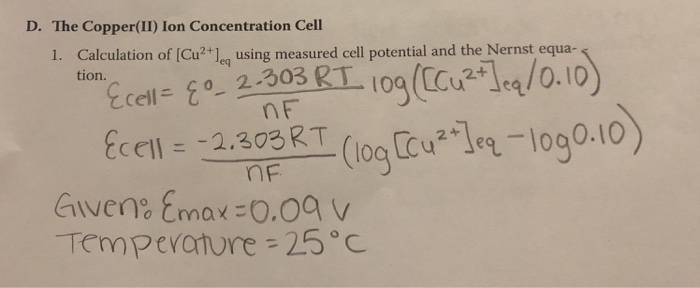 D. The Copper(II) Ion Concentration Cell
1. Calculation of [Cu²⁺]eq using measured cell potential and the Nernst equa-
tion.
Ɛcell = Ɛ° - 2.303 RT / nF log([Cu²⁺]eq/0.10)
Ɛcell = -2.303RT / nF (log[Cu²⁺]eq - log0.10)
Given: Ɛmax = 0.09 V
Temperature = 25°C